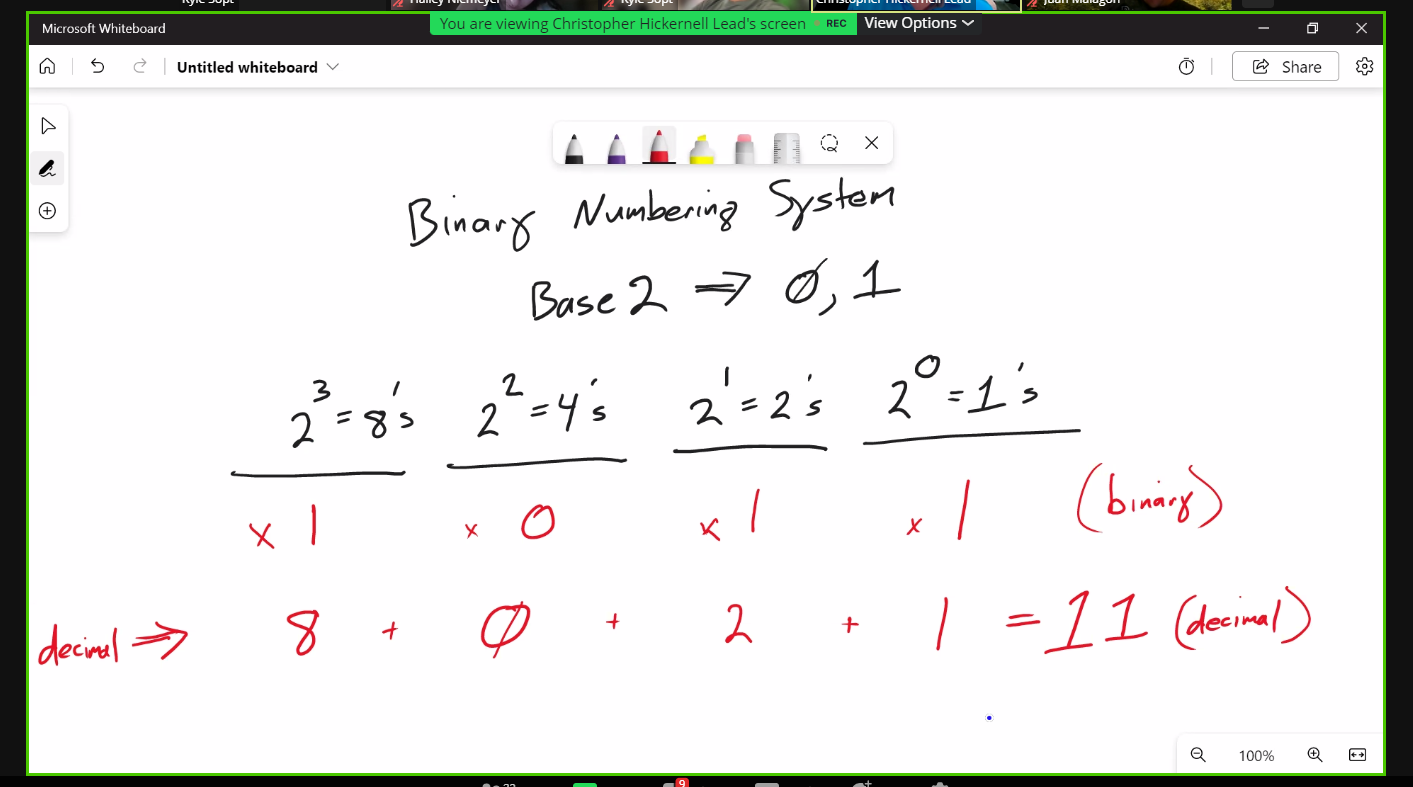 Kyle Sopt Hailey Niemeyer Kyle Sopt Christopher Hickernell Lead Juan Malagon
You are viewing Christopher Hickernell Lead's screen REC View Options
Microsoft Whiteboard
Untitled whiteboard Share
Binary Numbering System
Base 2 ⇒ 0, 1
2³ = 8's 2² = 4's 2¹ = 2's 2⁰ = 1's
x 1 x 0 x 1 x 1 (binary)
decimal ⇒ 8 + 0 + 2 + 1 = 11 (decimal)
100%
9